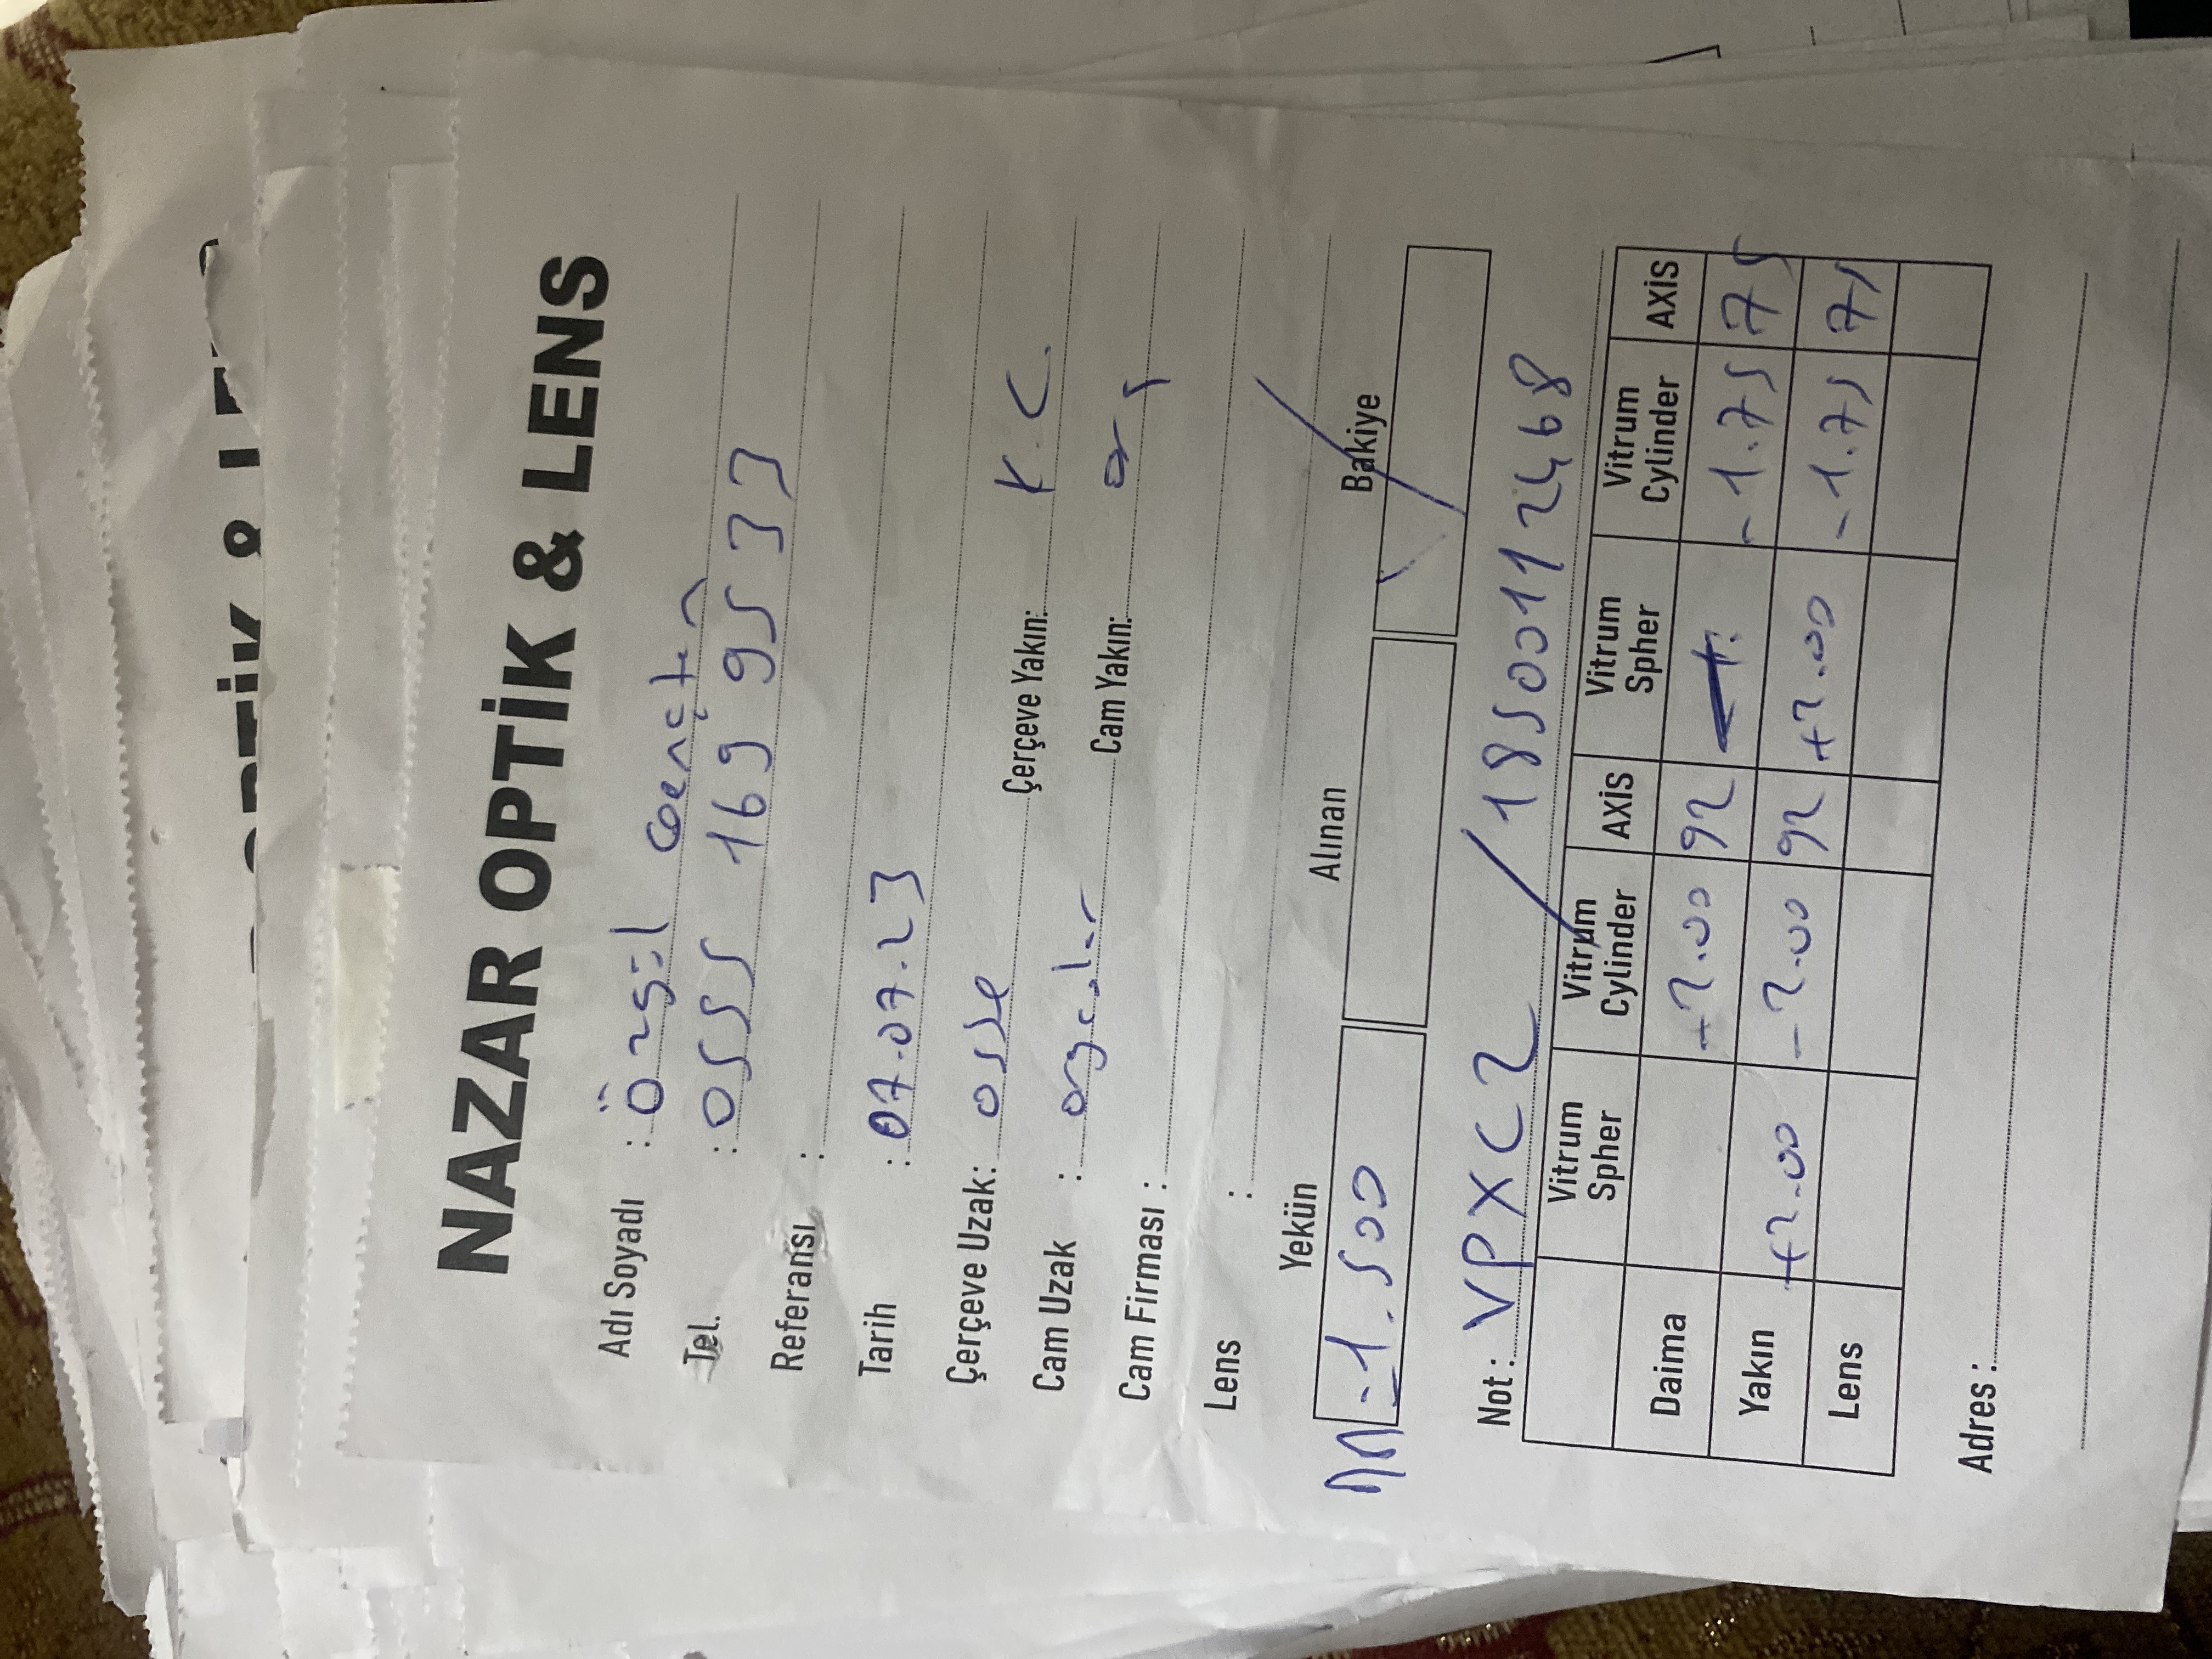 OPTİK & LENS
NAZAR OPTİK & LENS
Adı Soyadı : Özgül Gençten
Tel. : 0555 169 9533
Referansı :
Tarih : 07.07.23
Çerçeve Uzak: osse Çerçeve Yakın: K.C.
Cam Uzak : orgçlar Cam Yakın: orç
Cam Firması :
Lens :
Yekün Alınan Bakiye
=1.500
Not : VPXC2 / 185001112468
Vitrum Spher Vitrum Cylinder AXİS Vitrum Spher Vitrum Cylinder AXİS
Daima -2.00 92 -1.75 75
Yakın +2.00 -2.00 92 +2.00 -1.75 75
Lens
Adres :